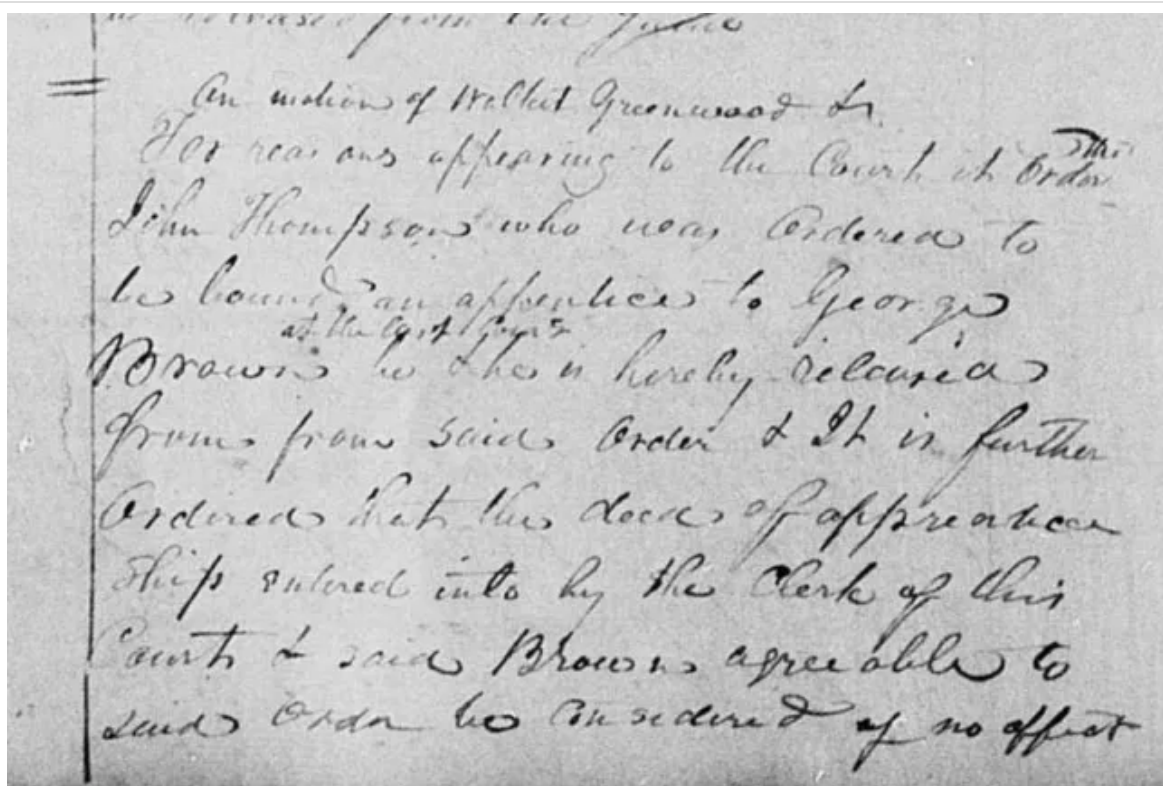 released from the
On motion of Greenwood &
For reasons appearing to the Court it Order
this
John Thompson who was Ordered to
be bound an apprentice to George
at the Cost
Brown be & he is hereby released
from from said Order & It is further
Ordered that the deed of apprentice
ship entered into by the Clerk of this
Court & said Brown agreeable to
said Order be Considered of no effect